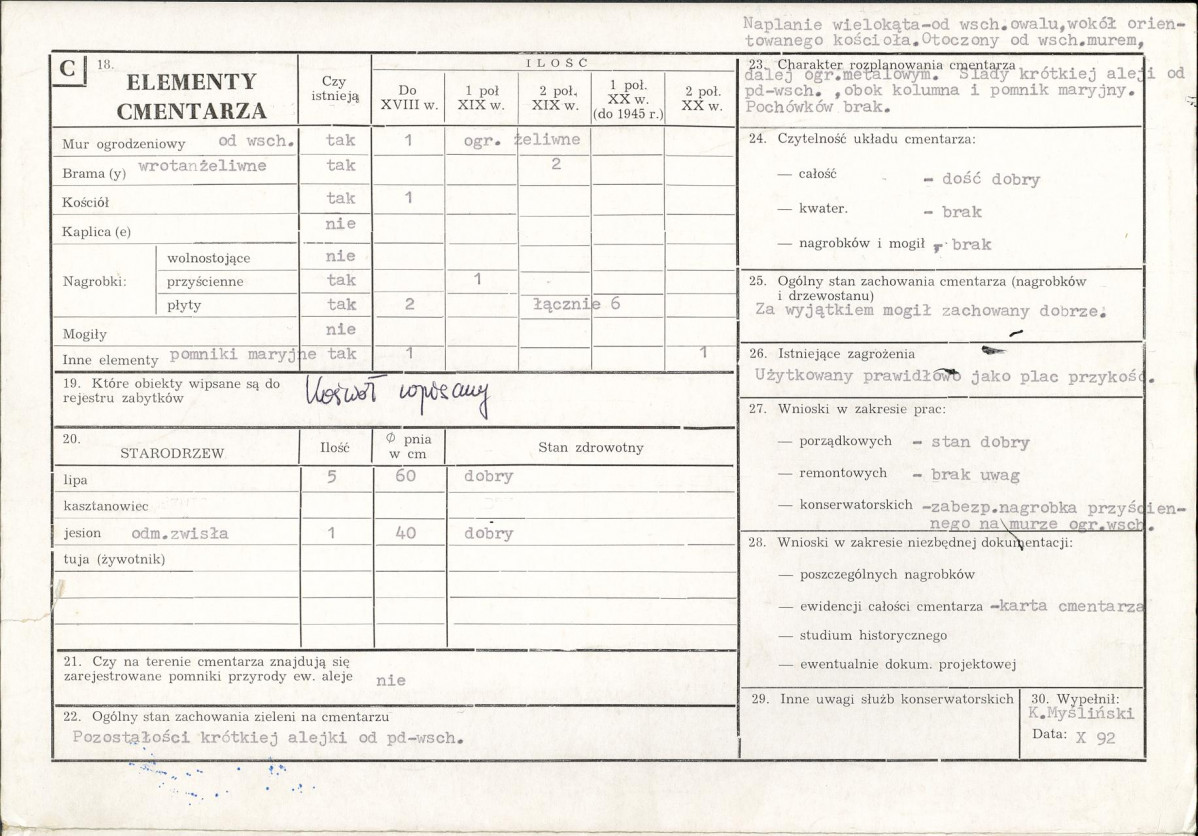 C
18.
ELEMENTY
CMENTARZA
Czy
istnieją
ILOŚĆ
Do
XVIII w.
1 poł
XIX w.
2 poł.
XIX w.
1 poł.
XX w.
(do 1945 r.)
2 poł.
XX w.
Mur ogrodzeniowy od wsch. tak 1 ogr. żeliwne
Brama (y) wrotanżeliwne tak 2
Kościół tak 1
Kaplica (e) nie
Nagrobki:
wolnostojące nie
przyścienne tak 1
płyty tak 2 łącznie 6
Mogiły nie
Inne elementy pomniki maryjne tak 1 1
19. Które obiekty wipsane są do
rejestru zabytków
Kościół wpisany
20.
STARODRZEW
Ilość
Ø pnia
w cm
Stan zdrowotny
lipa 5 60 dobry
kasztanowiec
jesion odm.zwisła 1 40 dobry
tuja (żywotnik)
21. Czy na terenie cmentarza znajdują się
zarejestrowane pomniki przyrody ew. aleje nie
22. Ogólny stan zachowania zieleni na cmentarzu
Pozostałości krótkiej alejki od pd-wsch.
Naplanie wielokąta-od wsch.owalu,wokół orien-
towanego kościoła.Otoczony od wsch.murem,
23. Charakter rozplanowania cmentarza
dalej ogr.metalowym. Slady krótkiej aleji od
pd-wsch. ,obok kolumna i pomnik maryjny.
Pochówków brak.
24. Czytelność układu cmentarza:
— całość - dość dobry
— kwater. - brak
— nagrobków i mogił - brak
25. Ogólny stan zachowania cmentarza (nagrobków
i drzewostanu)
Za wyjątkiem mogił zachowany dobrze.
26. Istniejące zagrożenia
Użytkowany prawidłowo jako plac przykość.
27. Wnioski w zakresie prac:
— porządkowych - stan dobry
— remontowych - brak uwag
— konserwatorskich -zabezp.nagrobka przyścien-
nego na murze ogr.wsch.
28. Wnioski w zakresie niezbędnej dokumentacji:
— poszczególnych nagrobków
— ewidencji całości cmentarza -karta cmentarza
— studium historycznego
— ewentualnie dokum. projektowej
29. Inne uwagi służb konserwatorskich
30. Wypełnił:
K.Myśliński
Data: X 92